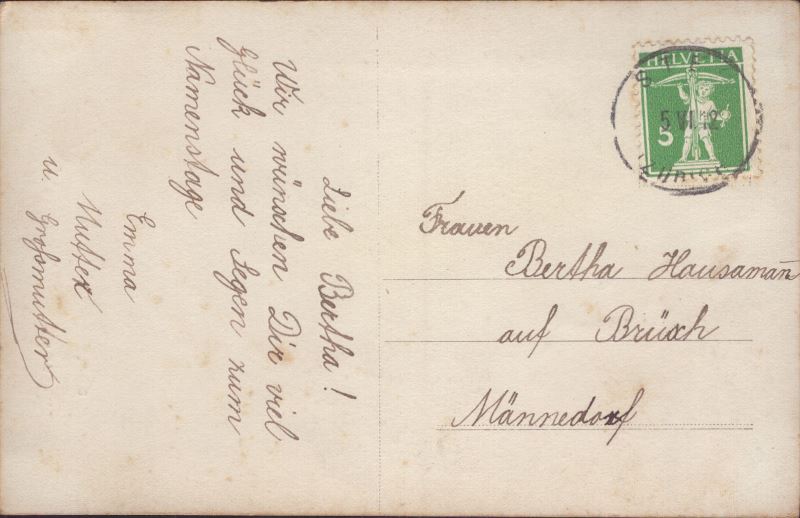 Liebe Bertha!
Wir wünschen Dir viel
Glück und Segen zum
Namenstage
Emma
Mutter
u. Großmutter
HELVETIA
5
5 VI 12
Frauen
Bertha Hausamañ
auf Brüch
Männedorf